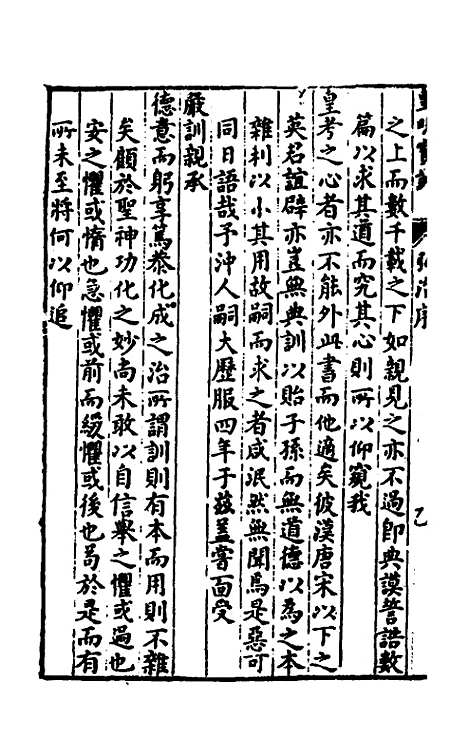 之上而數千載之下如親見之亦不過即典謨誥誥數
篇以求其道而究其心則所以仰窺我
皇考之心者亦不能外此書而他適矣彼漢唐宋以下之
英名誼辟亦豈無典訓以貽子孫而無道德以為之本
雜利以小其用故嗣而求之者咸泯然無聞焉是惡可
同日語哉予沖人嗣大歷服四年于茲蓋嘗面受
嚴訓親承
德意而躬享篤恭化成之治所謂訓則有本而用則不雜
矣顧於聖神功化之妙尚未敢以自信舉之懼或過也
安之懼或惰也急懼或前而緩懼或後也局於是而有
所未至將何以仰追